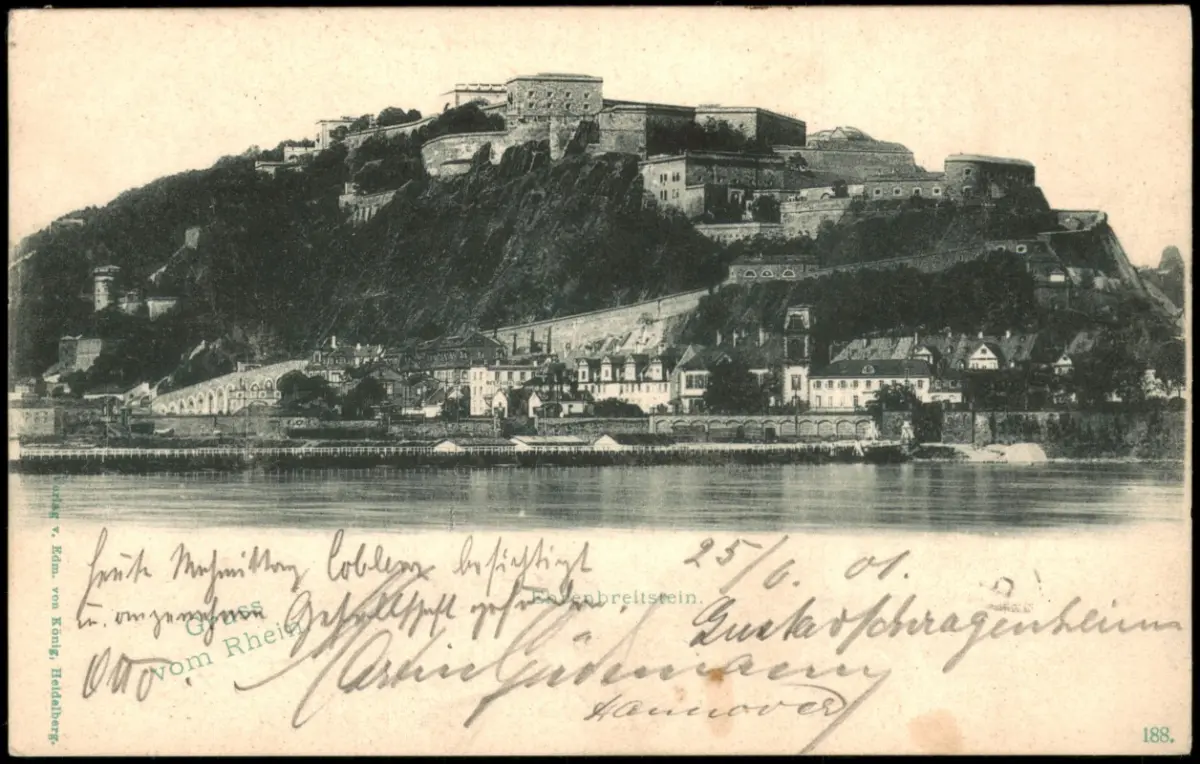 heute Nachmittag Coblenz besichtigt
25/6. 01.
u. angenehme Gesellschaft gefunden.
Ehrenbreitstein.
Gruss
vom Rhein
Otto.
Martin
Hannover
Verlag v. Edm. von König, Heidelberg.
188.